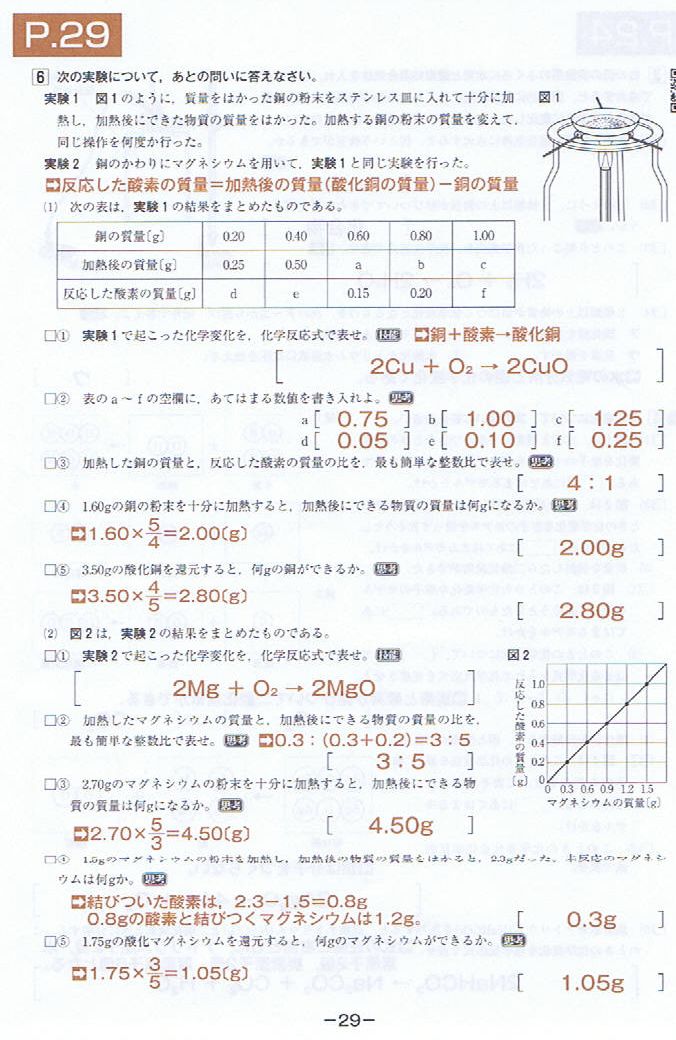 P.29
6 次の実験について，あとの問いに答えなさい。
実験1 図1のように，質量をはかった銅の粉末をステンレス皿に入れて十分に加
熱し，加熱後にできた物質の質量をはかった。加熱する銅の粉末の質量を変えて，
同じ操作を何度か行った。
図1
実験2 銅のかわりにマグネシウムを用いて，実験1と同じ実験を行った。
➡反応した酸素の質量＝加熱後の質量(酸化銅の質量)－銅の質量
(1) 次の表は，実験1の結果をまとめたものである。
銅の質量〔g〕 0.20 0.40 0.60 0.80 1.00
加熱後の質量〔g〕 0.25 0.50 a b c
反応した酸素の質量〔g〕 d e 0.15 0.20 f
□① 実験1で起こった化学変化を，化学反応式で表せ。技能 ➡銅＋酸素→酸化銅
［ 2Cu ＋ O₂ → 2CuO ］
□② 表のa～fの空欄に，あてはまる数値を書き入れよ。思考
a［ 0.75 ］b［ 1.00 ］c［ 1.25 ］
d［ 0.05 ］e［ 0.10 ］f［ 0.25 ］
□③ 加熱した銅の質量と，反応した酸素の質量の比を，最も簡単な整数比で表せ。思考
［ 4：1 ］
□④ 1.60gの銅の粉末を十分に加熱すると，加熱後にできる物質の質量は何gになるか。思考
➡1.60×5/4＝2.00〔g〕
［ 2.00g ］
□⑤ 3.50gの酸化銅を還元すると，何gの銅ができるか。思考
➡3.50×4/5＝2.80〔g〕
［ 2.80g ］
(2) 図2は，実験2の結果をまとめたものである。
□① 実験2で起こった化学変化を，化学反応式で表せ。技能
［ 2Mg ＋ O₂ → 2MgO ］
□② 加熱したマグネシウムの質量と，加熱後にできる物質の質量の比を，
最も簡単な整数比で表せ。思考 ➡0.3：(0.3＋0.2)＝3：5
［ 3：5 ］
図2
反応した酸素の質量〔g〕
1.0
0.8
0.6
0.4
0.2
0
0 0.3 0.6 0.9 1.2 1.5
マグネシウムの質量〔g〕
□③ 2.70gのマグネシウムの粉末を十分に加熱すると，加熱後にできる物
質の質量は何gになるか。思考
➡2.70×5/3＝4.50〔g〕
［ 4.50g ］
□④ 1.5gのマグネシウムの粉末を加熱し，加熱後の物質の質量をはかると，2.3gだった。未反応のマグネシ
ウムは何gか。思考
➡結びついた酸素は，2.3－1.5＝0.8g
0.8gの酸素と結びつくマグネシウムは1.2g。
［ 0.3g ］
□⑤ 1.75gの酸化マグネシウムを還元すると，何gのマグネシウムができるか。思考
➡1.75×3/5＝1.05〔g〕
［ 1.05g ］
－29－